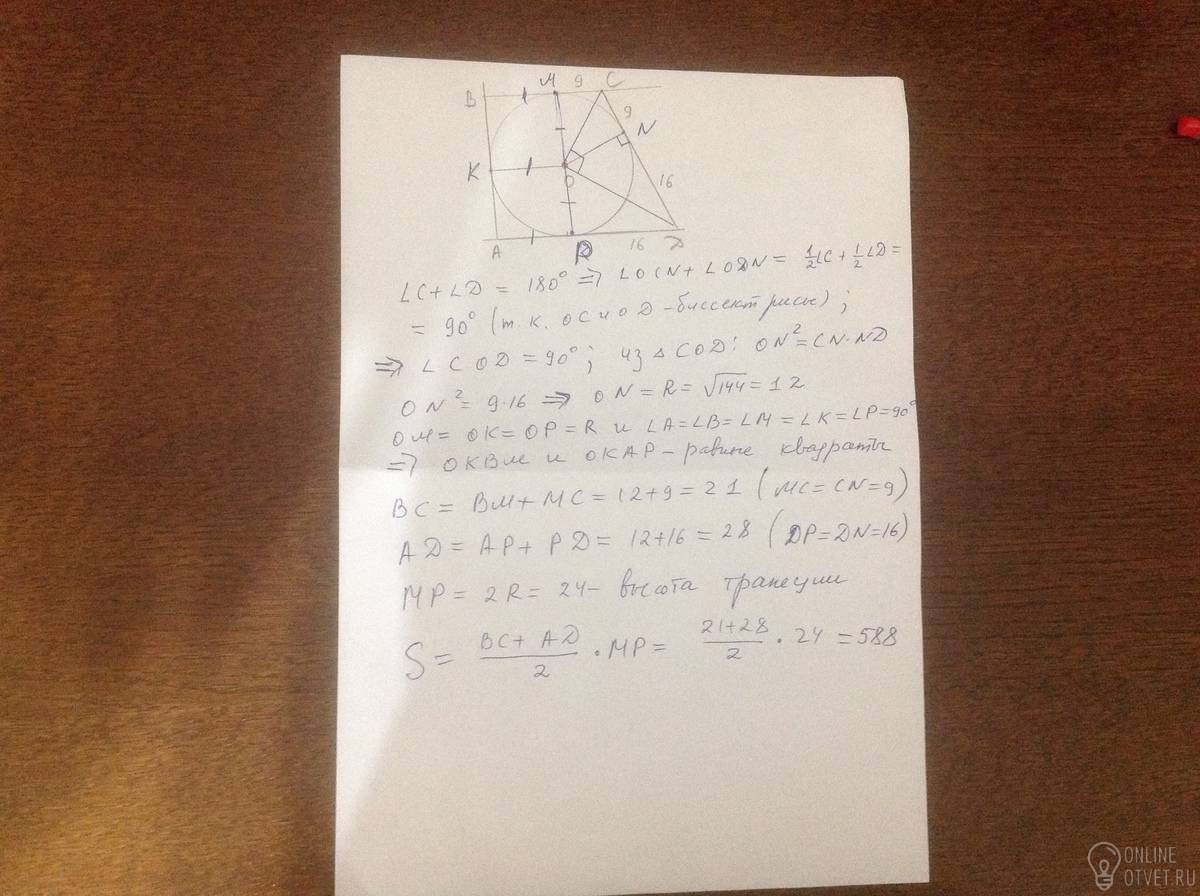 B M 9 C
9
N
K
O
16
A P 16 D
∠C+∠D = 180° ⇒ ∠OCN + ∠ODN = 1/2∠C + 1/2∠D =
= 90° (т.к. OC и OD – биссектрисы);
⇒ ∠COD = 90°; из △COD: ON² = CN·ND
ON² = 9·16 ⇒ ON = R = √144 = 12
OM = OK = OP = R и ∠A = ∠B = ∠M = ∠K = ∠P = 90°
⇒ OKBM и OKAP – равные квадраты
BC = BM + MC = 12+9 = 21 (MC = CN = 9)
AD = AP + PD = 12+16 = 28 (DP = DN = 16)
MP = 2R = 24 – высота трапеции
S = (BC + AD)/2 · MP = (21+28)/2 · 24 = 588
ONLINE
OTVET.RU